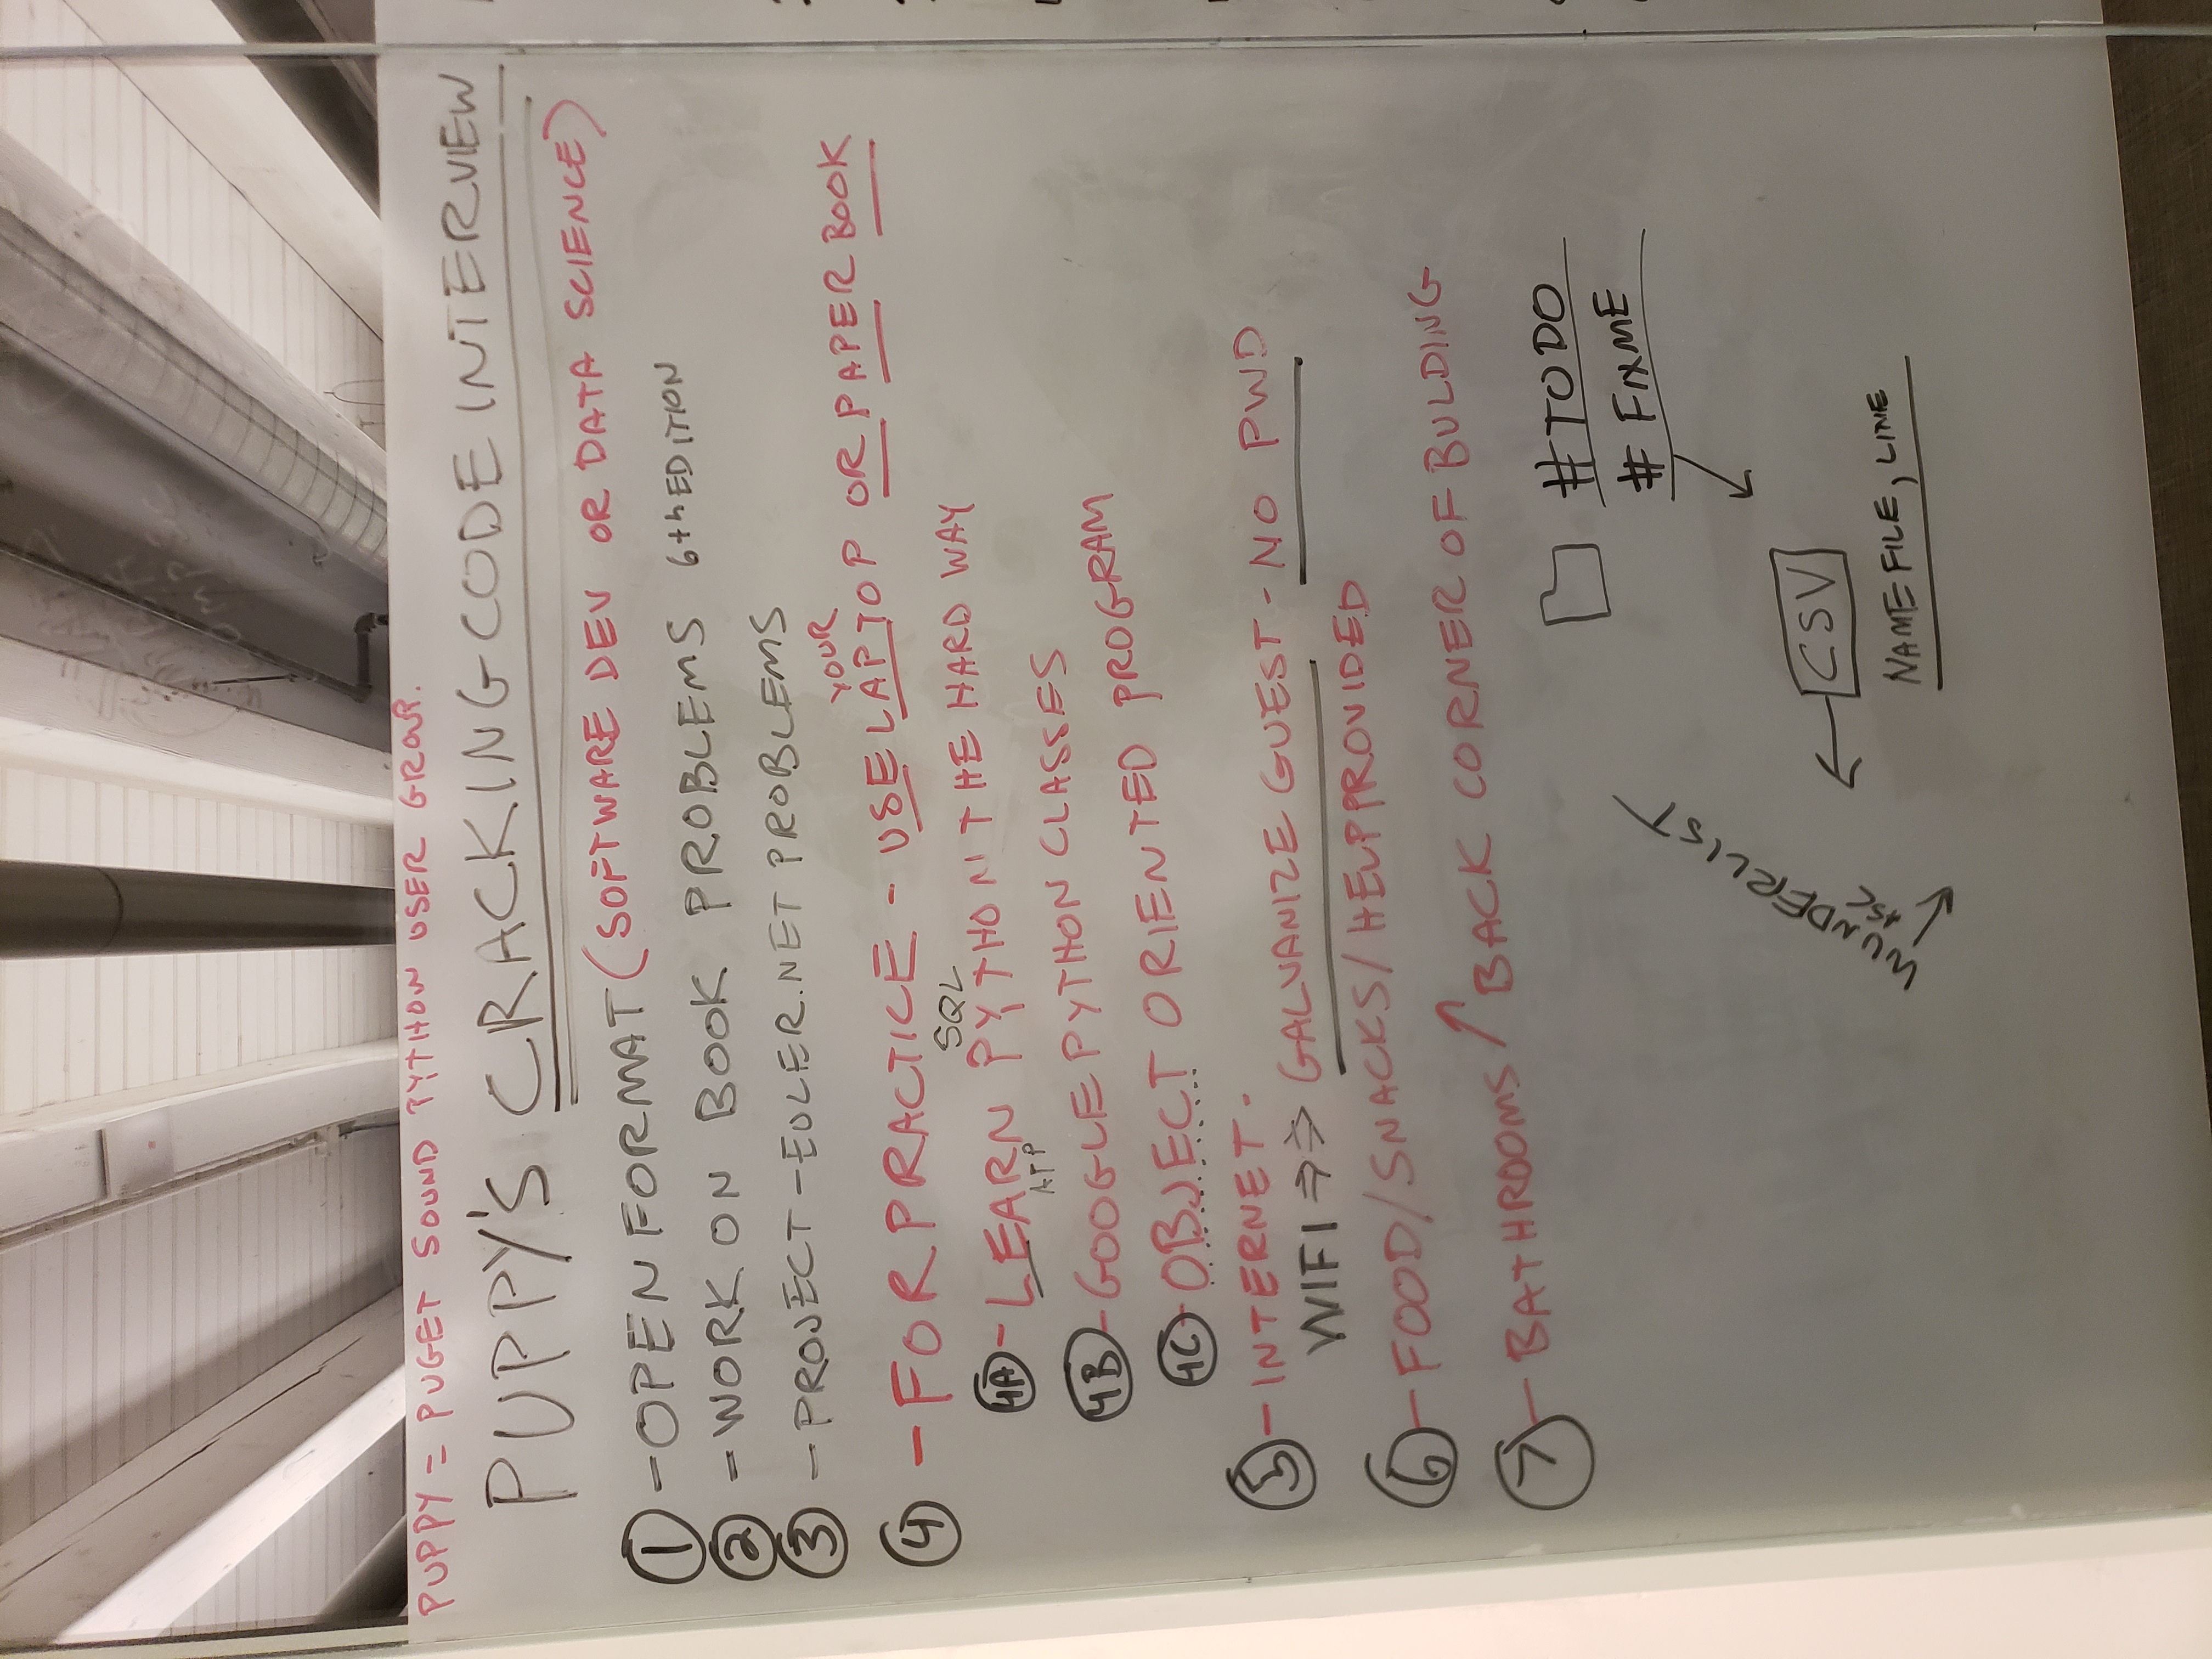 PUPPY = PUGET SOUND PYTHON USER GROUP.
PUPPY'S CRACKING CODE INTERVIEW
1 - OPEN FORMAT (SOFTWARE DEV OR DATA SCIENCE)
2 - WORK ON BOOK PROBLEMS 6th EDITION
3 - PROJECT-EULER.NET PROBLEMS
YOUR
4 - FOR PRACTICE - USE LAPTOP OR PAPER BOOK
SQL
4A - LEARN PYTHON THE HARD WAY
4B - GOOGLE PYTHON CLASSES
4C - OBJECT ORIENTED PROGRAM
5 - INTERNET -
WIFI ⇒⇒ GALVANIZE GUEST - NO PWD
6 - FOOD/SNACKS/HELP PROVIDED
7 - BATHROOMS ↑ BACK CORNER OF BULDING
#TODO
# FIXME
WUNDERLIST
CSV
NAME FILE, LINE